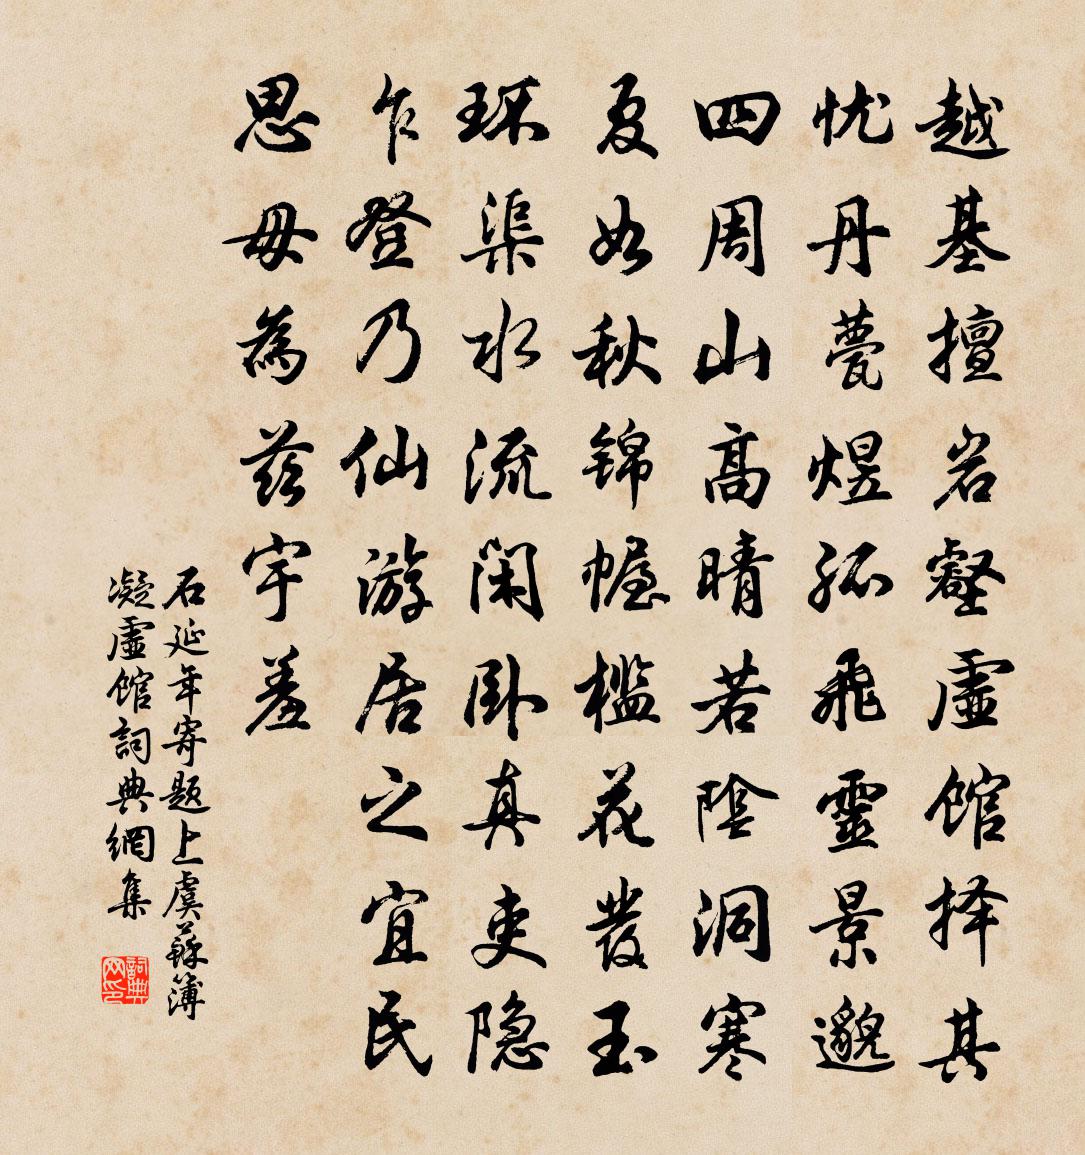 越基擅岩壑虛館择其
忧丹甍煜孤飛靈景邈
四周山高晴若陰洞寒
夏如秋錦幄檻花發玉
环渠水流闲卧真吏隐
乍登乃仙游居之宜民
思毋為兹宇羞
石延年寄題上虞蘇簿
凝虛馆詞典網集
詞典网印